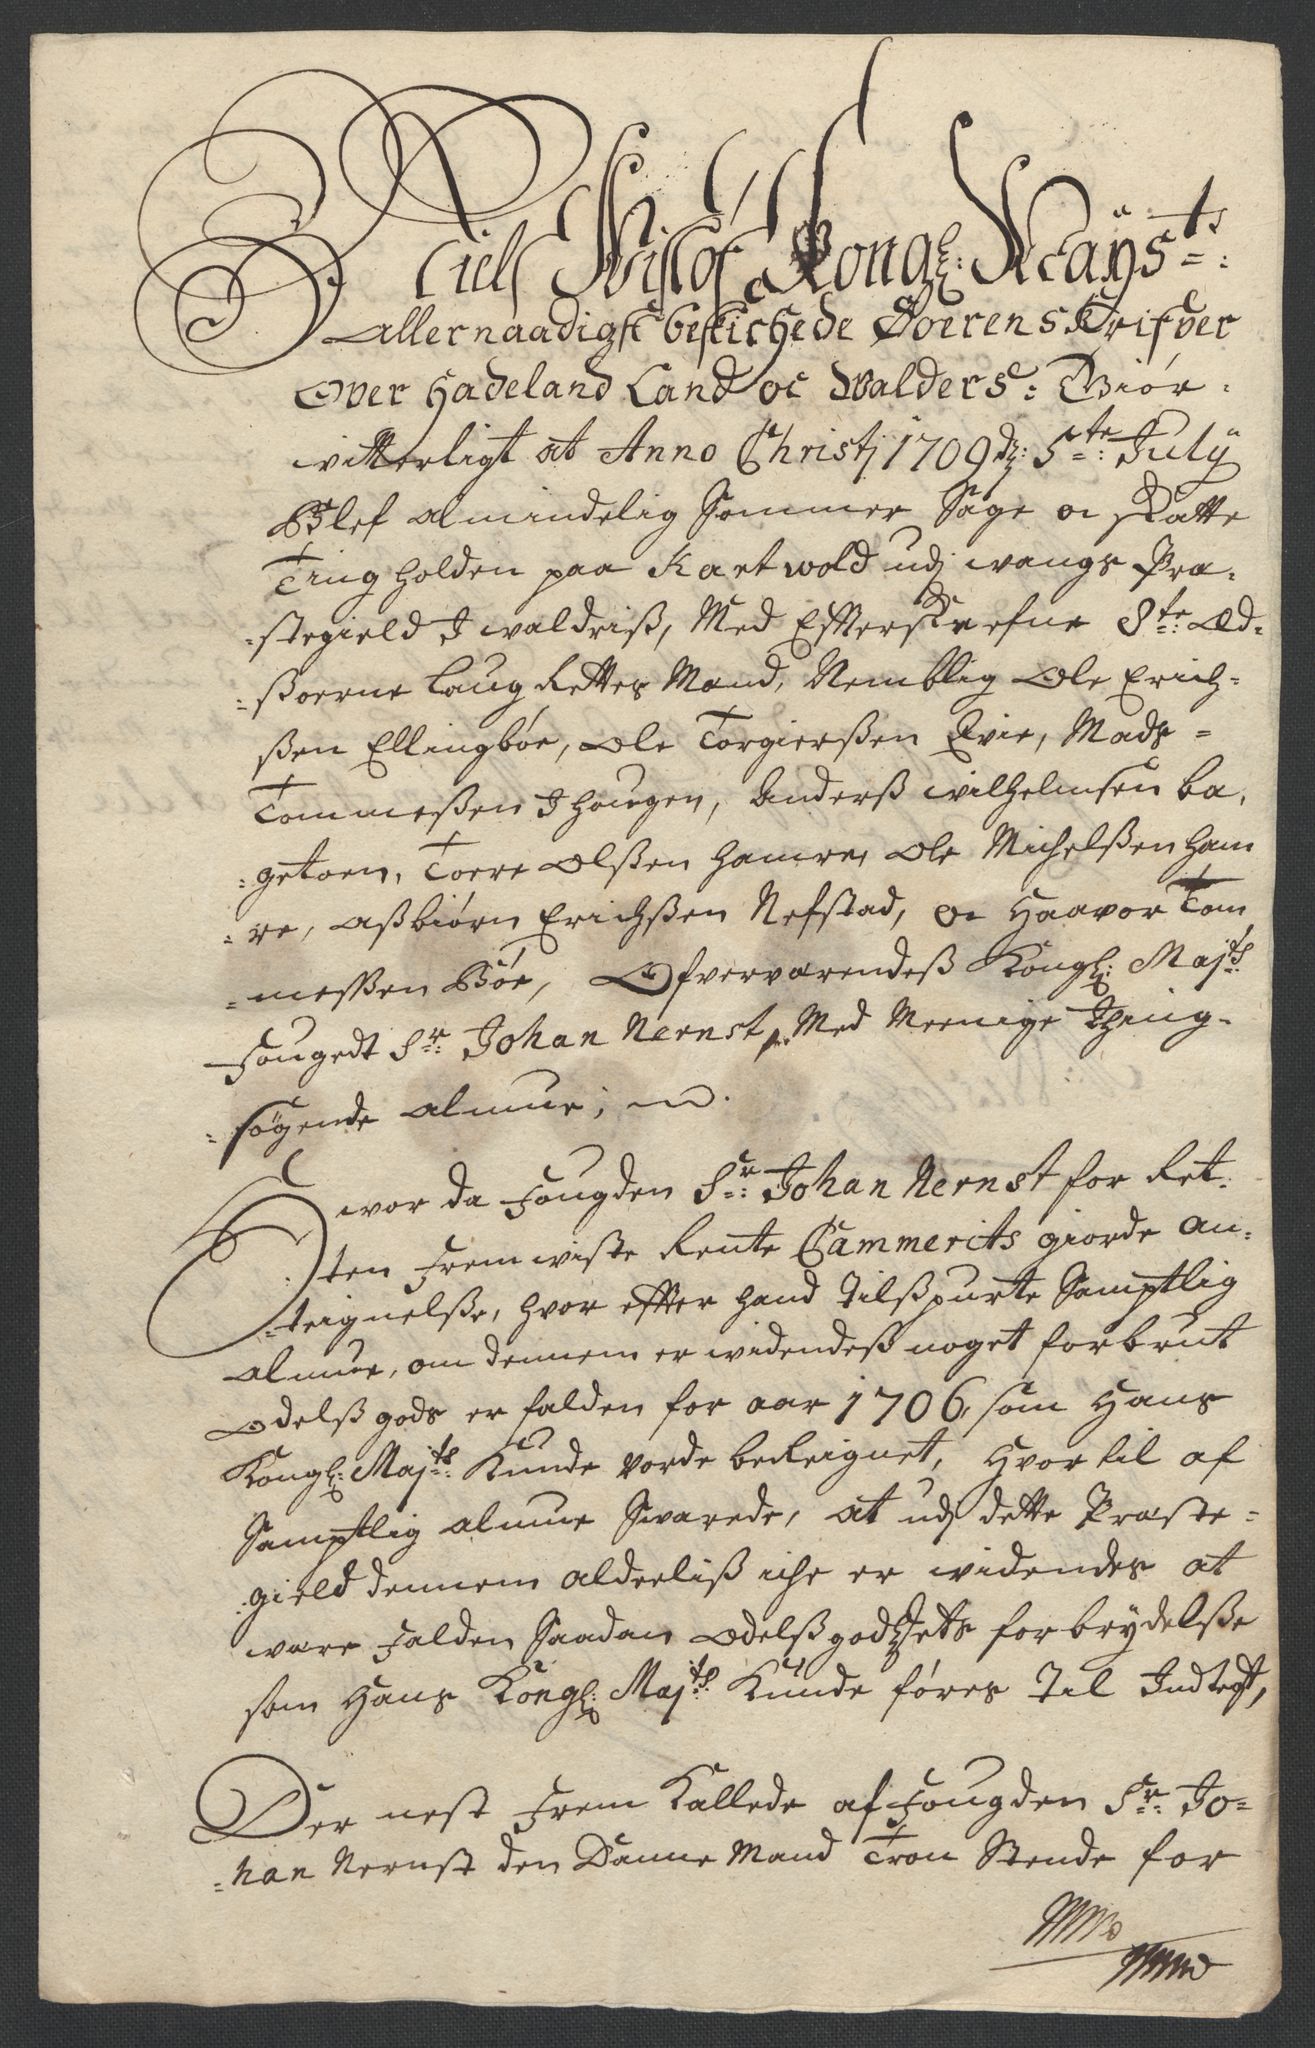 Niels Wisløf Kongl: Mäÿsts:
Allernaadigst beskichede Soerenskrifver
Over Hadeland Land oc Walders: Giør
vitterligt at Anno Christj 1709 dz: 5te: Julÿ
Blef almindelig Sommer Sage oc Skatte
Ting holden paa Kartwold udj wangs Præ-
-stegield J waldriß, Med Efterskrefne 8te: Ed-
-ßoerne Laug Rettes Mænd, Nemblig Ole Erich-
ßen Ellingbøe, Ole Torgierßen Qvie, Mads
Tommeßen J hougen, Anderß wilhelmsen ba,
-getoen, Torre Olßen hamre, Ole Michelßen ham
-re, Aßbiørn Erichßen Nefstad, oc Haavor Tom
-meßen Bøe, Ofverværendeß Kongl: Majts:
Fougedt Sr: Johan Nernst, Med Meenige Thing-
-søgende Almue;
Hvor da Fougden Sr: Johan Nernst for Ret-
-ten Fremwiste Rente Cammerits giorde An-
-teignelße, hvor efter hand Tilßpurte Samptlig
Almue, om dennem er widendeß noget forbrut
Odelß gods er falden for aar 1706, som Hans
Kongl: Majts: Kunde vorde bereignet, Hvortil af
Samptlig Almue Swarede, at udj dette Præste-
-gield dennem alderliß iche er widendes at
være Falden Saadan Odelß godzets forbrydelße
som Hans Kongl: Majts: Kunde føres Til Indtegt,
Der nest Frem Kallede af Fougden Sr: Jo-
-han Nernst den Danne Mand Tron Stende for